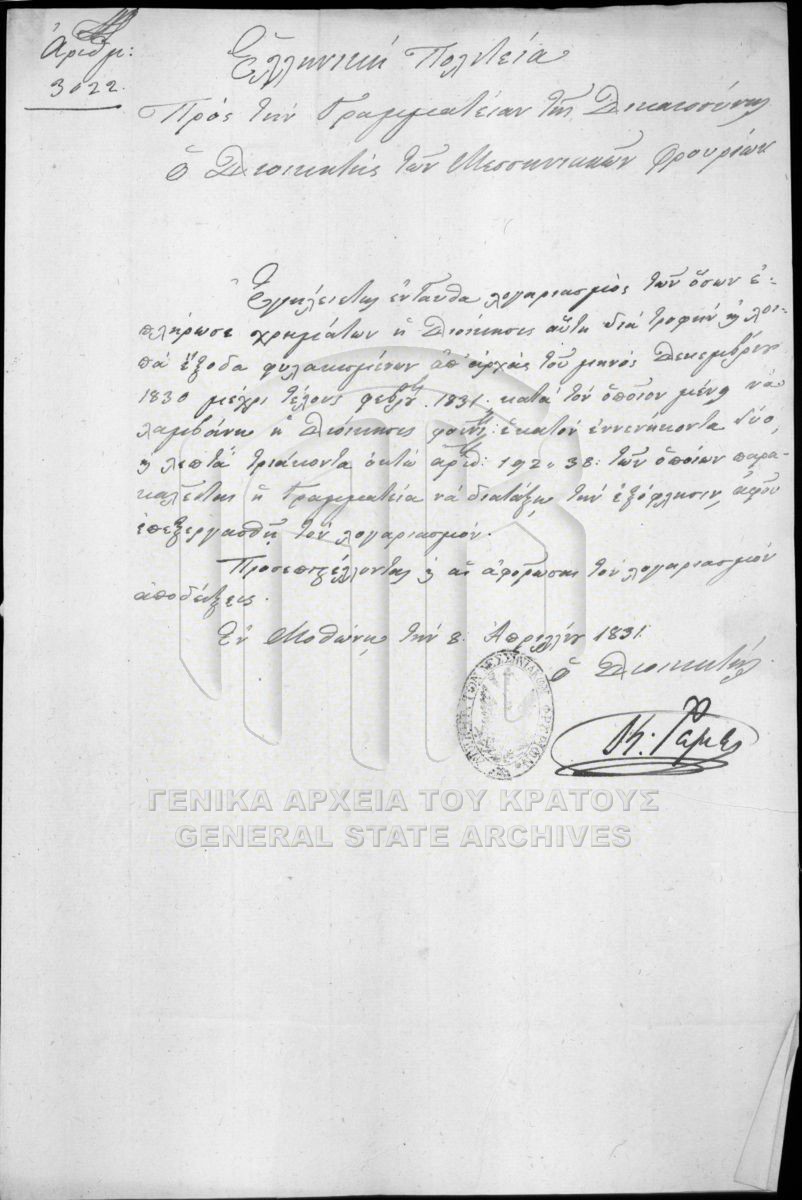 Ἀριθμ:
3022.
Ἑλληνική Πολιτεία
Πρός τήν Γραμματείαν τῆς Δικαιοσύνης
ὁ Διοικητής τῶν Μεσσηνιακῶν φρουρίων
Ἐγκλείεται ἐνταῦθα λογαριασμός τῶν ὅσων ἐ-
πλήρωσε χρημάτων ἡ Διοίκησις αὕτη διά τροφήν ϗ λοι-
πά ἔξοδα φυλακισμένων ἀπ' ἀρχάς τοῦ μηνός Δεκεμβρίου
1830 μέχρι τέλους φεβρ. 1831, κατά τόν ὁποῖον μένει νά
λαμβάνῃ ἡ Διοίκησις φοίν: ἑκατόν ἐννενήκοντα δύο,
ϗ λεπτά τριάκοντα ὀκτώ ἀριθ: 192: 38: τῶν ὁποίων παρα-
καλεῖται ἡ Γραμματεία νά διατάξῃ τήν ἐξόφλησιν, ἀφοῦ
ἐπεξεργασθῇ τόν λογαριασμόν.
Προσεπιστέλλονται ϗ αἱ ἀφορῶσαι τόν λογαριασμόν
ἀποδείξεις.
Ἐν Μοθώνῃ τήν 8. Ἀπριλίου 1831.
ὁ Διοικητής
ΤΩΝ ΜΕΣΣΗΝΙΑΚΩΝ ΦΡΟΥΡΙΩΝ
Κ. Ράμφος
ΓΕΝΙΚΑ ΑΡΧΕΙΑ ΤΟΥ ΚΡΑΤΟΥΣ
GENERAL STATE ARCHIVES